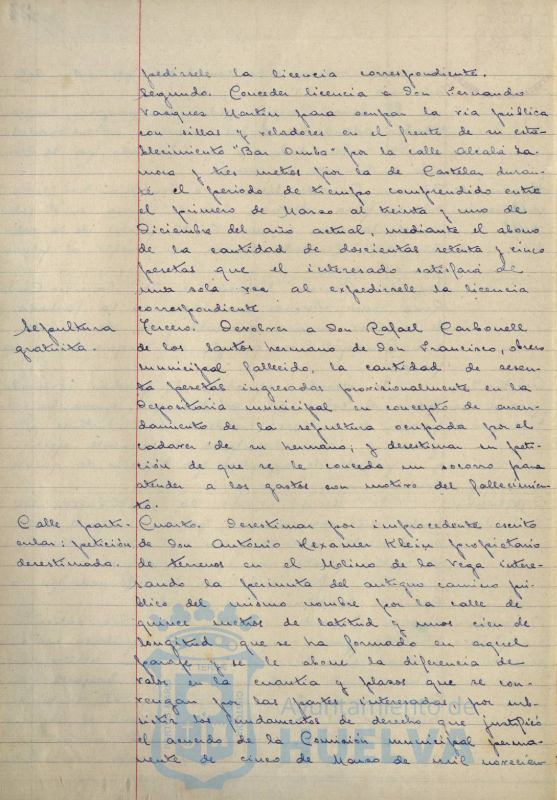 pedirsele la licencia correspondiente.
Segundo. Conceder licencia a Don Fernando
Vazquez Martin para ocupar la via pública
con sillas y veladores en el frente de su esta-
blecimiento "Bar Onuba" por la calle Alcalá Za-
mora y tres metros por la de Castelar duran-
te el periodo de tiempo comprendido entre
el primero de Marzo al treinta y uno de
Diciembre del año actual, mediante el abono
de la cantidad de doscientas setenta y cinco
pesetas que el interesado satisfará de
una sola vez al expedirsele la licencia
correspondiente
Sepultura
gratuita.
Tercero. Devolver a Don Rafael Carbonell
de los Santos hermano de Don Francisco, obrero
municipal fallecido, la cantidad de sesen-
ta pesetas ingresadas provisionalmente en la
Depositaria municipal en concepto de arren-
damiento de la sepultura ocupada por el
cadaver de su hermano; y desestimar su peti-
ción de que se le conceda un socorro para
atender a los gastos con motivo del fallecimien-
to.
Calle parti-
cular: petición
desestimada.
Cuarto. Desestimar por improcedente escrito
de Don António Hexamer Klein propietario
de terrenos en el Molino de la Vega intere-
sando la permuta del antiguo camino pú-
blico del mismo nombre por la calle de
quince metros de latitud y unos cien de
longitud que se ha formado en aquel
paraje y se le abone la diferencia de
valor en la cuantia y plazos que se con-
vengan por las partes interesadas por sub-
sistir los fundamentos de derecho que justificó
el acuerdo de la Comisión municipal perma-
nente de cinco de Marzo de mil novecien-
Ayuntamiento de
HUELVA